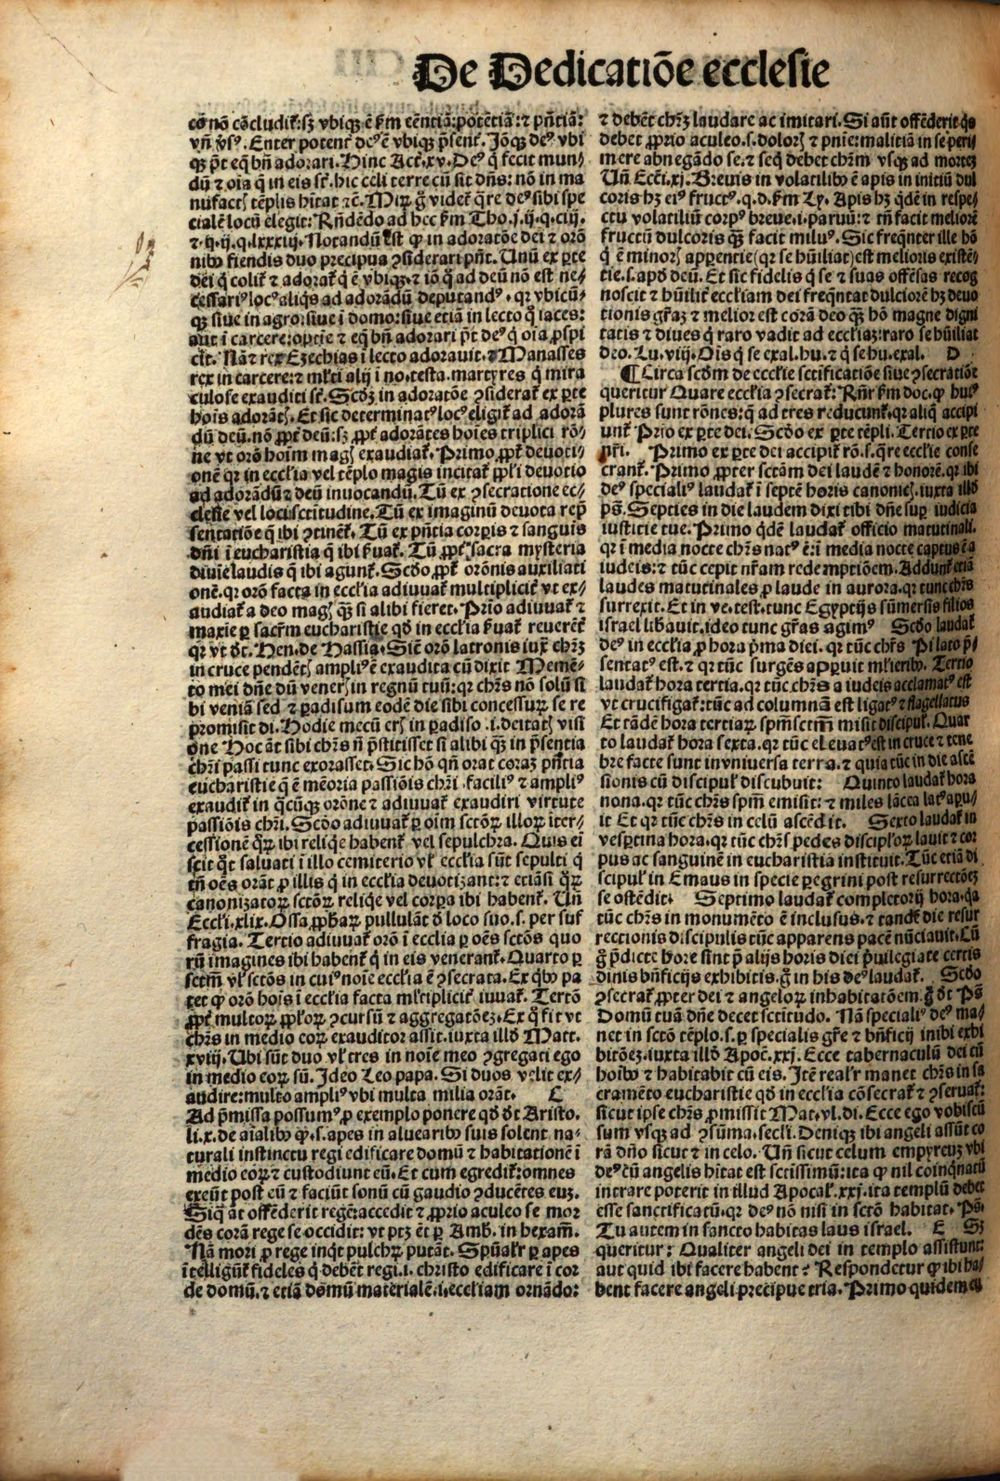 De Dedicatiōe ecclesie
eō nō cōcludit̃: sꝫ vbiqꝫ ē ẜm eēntiā: potētiā: ⁊ pn̄tiā:
vñ ṽsꝰ. Enter potent̃ deꝰ ē vbiqꝫ p̄sent̃. Jōqꝫ deꝰ vbi
qꝫ pt̄ eq̄ bn̄ adorari. Hinc Act̃. xv. Deꝰ q̇ fecit mun/
dū ⁊ oīa q̄ in eis st̃. hic celi terre cū sit dn̄s: nō in ma
nufact̃ tēplis hītat ⁊c̄. Mir̃ g̊ videt̃ q̄re deꝰ sibi spe
cialē locū elegit: Rn̄dēdo ad hec ẜm Tho. j. ij. q. ciij.
⁊. ij. ij. q. lxxxiij. Notandū est ꝙ in adoratōe dei ⁊ orō
nibꝰ fiendis duo precipua ꝯsiderari pn̄t. Unū ex ꝑte
dei q̇ colit̃ ⁊ adorat̃ q̇ ē vbiqꝫ. ⁊ iō q̄ ad deū nō est ne/
cessariꝰ locꝰ aliqs ad adorādū deputandꝰ. qꝛ vbicū/
qꝫ siue in agro: siue ī domo: siue etiā in lecto q̇ iaces:
aut ī carcere: optīe ⁊ eq̄ bn̄ adorari pt̄ deꝰ q̇ oīa ꝓspi
cit. Nā ⁊ rex Ezechias ī lecto adorauit. ⁊ Manasses
rex in carcere: ⁊ ml̃ti alij ī no. testa. martyres q̇ mira
culose exauditi st̃. Scd̄o in adoratōe ꝯsiderat̃ ex ꝑte
hoīs adorāt̃. Et sic determinatꝰ locꝰ eligit̃ ad adorā
dū deū. nō ꝓpt̃ deū: sꝫ ꝓpt̃ adorātes hoīes triplici rō/
ne vt orō hoīm magꝭ exaudiat̃. Primo ꝓpt̃ deuoti/
onē qꝛ in eccľia vel tēplo magis incitat̃ ꝓpľi deuotio
ad adorādū ⁊ deū inuocandū. Tū ex ꝯsecratione ec/
clesie vel loci sctitudine. Tū ex imaginū deuota rep̄
sentatiōe q̄ ibi ꝯtinēt̃. Tū ex pn̄tia corꝑis ⁊ sanguis
dn̄i ī eucharistia q̄ ibi ẜuat̃. Tū ꝓpt̃ sacra mysteria
diuīe laudis q̄ ibi agunt̃. Scd̄o ꝓpt̃ orōnis auxiliati
onē. qꝛ orō facta in eccľia adiuuat̃ multiplicit̃ vt ex/
audiat̃ a deo magꝭ qꝫ si alibi fieret. Prīo adiuuat̃ ⁊
maxīe ꝑ sacr̄m eucharistie qd̄ in eccľia ẜuat̃ reuerēt̃
qꝛ vt d̄t. Hen. de Hassia. Sic̃ orō latronis iux̄ chr̄ꝫ
in cruce pendēt̃ ampliꝰ ē exaudita cū dixit Memē/
to mei dn̄e dū vener̃ in regnū tuū: qꝛ chr̄s nō solū si
bi veniā sed ⁊ ꝑadisum eodē die sibi concessuꝝ se re
promisit di. Hodie mecū er̃ in ꝑadiso. i. deitat̃ visi
one Hoc āt sibi chr̄s n̄ p̄stitisset si alibi qꝫ in p̄sentia
chr̄i passi tunc exorasset. Sic hō qn̄ orat coraꝫ pn̄tia
eucharistie q̄ ē mēoria passiōis chr̄i. faciliꝰ ⁊ ampliꝰ
exaudit̃ in q̄cūqꝫ orōne ⁊ adiuuat̃ exaudiri virtute
passiōis chr̄i. Scd̄o adiuuat̃ ꝑ oīm sctōꝝ illoꝝ īter/
cessionē qꝝ ibi reliq̄e habent̃ vel sepulchra. Quis eī
scit qt̃ saluati ī illo cemiterio vľ eccľia sūt sepulti q̇
tn̄ oēs orāt ꝓ illis q̇ in eccľia deuotizant: ⁊ etiāsi q̇ꝝ
canonizatoꝝ sctōꝝ reliq̄e vel corꝑa ibi habent̃. Uñ
Eccľi. xlix. Ossa ꝓphaꝝ pullulāt d̄ loco suo. s. per suf
fragia. Tertio adiuuat̃ orō ī ecclia ꝑ oēs sctōs quo
rū imagines ibi habent̃ q̇ in eis venerant̃. Quarto ꝑ
sctm̄ vľ sctōs in cuiꝰ noīe eccľia ē ꝯsecrata. Ex q̇bꝰ pa
tet ꝙ orō hoīs ī eccľia facta ml̃tiplicit̃ iuuat̃. Tertō
ꝓpt̃ multoꝝ ꝓpľoꝝ ꝯcursū ⁊ aggregatōeꝫ. Ex q̇ fit vt
chr̄s in medio eoꝝ exauditor assit. iuxta illd̄ Matt.
xviij. Ubi sūt duo vľ tres in noīe meo ꝯgregati ego
in medio eoꝝ sū. Ideo Leo papa. Si duos velit ex/
audire: multo ampliꝰ vbi multa milia orāt. C
Ad p̄missa possumꝰ ꝓ exemplo ponere qd̄ d̄t Aristo.
li. x. de aīalibꝰ ꝙ. s. apes in aluearibꝰ suis solent na/
turali instinctu regi edificare domū ⁊ habitationē ī
medio eoꝝ ⁊ custodiunt eū. Et cum egredit̃: omnes
exeūt post eū ⁊ faciūt sonū cū gaudio ꝯducētes euꝫ.
Siq̄ āt offēderit regē: accedit ⁊ ꝓprio aculeo se mor
dēs corā rege se occidit: vt ptꝫ et̄ ꝑ Amb. in hexam̄.
Nā mori ꝓ rege inq̇t pulchꝝ putāt. Spūalr̃ ꝑ apes
ītelligūt̃ fideles q̇ debēt regi. i. christo edificare ī cor
de domū. ⁊ etiā domū materialē. i. eccľiam ornādo:
⁊ debēt chr̄ꝫ laudare ac imitari. Si aūt offēderit q̇s
debet ꝓprio aculeo. s. dolorꝭ ⁊ pnīe: malitiā in se peri
mere abnegādo se. ⁊ seq̇ debet chr̄m vsqꝫ ad morteꝫ
Uñ Eccľi. xj. Breuis in volatilibꝰ ē apis ⁊ initiū dul
coris hꝫ eiꝰ fructꝰ. q. d. ẜm Ly. Apis hꝫ q̇dē in respe/
ctu volatiliū corpꝰ breue. i. paruū: ⁊ tn̄ facit meliorē
fructū dulcoris qꝫ facit miluꝰ. Sic freq̄nter ille hō
q̇ ē minorꝭ apparentie (qꝛ se hūiliat) est melioris existē/
tie. s. apd̄ deū. Et sic fidelis q̇ se ⁊ suas offēsas recog
noscit ⁊ hūilit̃ eccľiam dei freq̄ntat dulciorē hꝫ deuo
tionis gr̄aꝫ ⁊ melior est corā deo qꝫ hō magne digni
tatis ⁊ diues q̇ raro vadit ad eccľiaꝫ: raro se hūiliat
deo. Lu. viij. Oīs q̇ se exal. hu. ⁊ q̇ se hu. exal. D
¶ Circa scd̄m de eccľie sctificatiōe siue ꝯsecratiōe
queritur Quare eccľia ꝯsecrat̃: Rn̄r ẜm doc. ꝙ huiꝰ
plures sunt rōnes: q̄ ad tres reducunt̃. qꝛ aliq̄ accipi
unt̃ Prīo ex ꝑte dei. Scd̄o ex ꝑte tēpli. Tertio ex ꝑte
pr̄i. Primo ex ꝑte dei accipit̃ rō. s. q̄re eccľie conse
crant̃. Primo ꝓpter sctām dei laudē ⁊ honorē. qꝛ ibi
deꝰ specialiꝰ laudat̃ ī septē horis canonicꝭ. iuxta illd̄
pꝰ. Septies in die laudem dixi tibi dn̄e suꝑ iudicia
iusticie tue. Primo q̇dē laudat̃ officio matutinali.
qꝛ ī media nocte chr̄s natꝰ ē: ī media nocte captus ē a
iudeis: ⁊ tūc cepit nr̄am redemptiōem. Addunt̃ etiā
laudes matutinales ꝓ laude in aurora. qꝛ tunc chr̄s
surrexit. Et in ve. test. tunc Egyptijs sūmersis filios
israel libāuit. ideo tunc gr̄as agimꝰ Scd̄o laudat̃
deꝰ in eccľia ꝓ hora p̄ma diei. qꝛ tūc chr̄s Pilato p̄/
sentatꝰ est. ⁊ qꝛ tūc surgēs apparuit mľieribꝰ. Tertio
laudat̃ hora tertia. qꝛ tūc chr̄s a iudeis acclamatꝰ est
vt crucifigat̃: tūc ad columnā est ligatꝰ ⁊ flagellatus
Et tādē hora tertiaꝝ spm̄ sctm̄ misit discipuľ. Quar
to laudat̃ hora sexta. qꝛ tūc eleuatꝰ est in cruce ⁊ tene
bre facte sunt in vniuersa terra. ⁊ quia tūc in die ascē
sionis cū discipuľ discubuit: Quinto laudat̃ hora
nona. qꝛ tūc chr̄s spm̄ emisit: ⁊ miles lācea latꝰ aꝑu/
it Et qꝛ tūc chr̄s in celū ascēdit. Sexto laudat̃ in
vesꝑtina hora. qꝛ tūc chr̄s pedes discipľoꝝ lauit ⁊ cor
pus ac sanguinē in eucharistia instituit. Tūc etiā di
scipuľ in Emaus in specie ꝑegrini post resurrectōeꝫ
se ostēdit. Septimo laudat̃ completorij hora. qꝛ
tūc chr̄s in monumēto ē inclusus. ⁊ tandē die resur
rectionis discipulis tūc apparens pacē nūciauit. Cū
g̊ p̄dicte hore sint p̄ alijs horis diei p̄uilegiate certis
dinis bn̄ficijs exhibitis. g̊ in his deꝰ laudat̃. Scd̄o
ꝯsecrat̃ ꝓpter dei ⁊ angeloꝝ inhabitatōem. g̊ d̄t Pꝰ
Domū tuā dn̄e decet sctitudo. Nā specialiꝰ deꝰ ma/
net in sctō tēplo. s. ꝑ specialis gr̄e ⁊ bn̄ficij inibi exhi
bitōeꝫ. iuxta illd̄ Apoc̃. xxj. Ecce tabernaculū dei cū
hoībꝰ ⁊ habitabit cū eis. Itē realr̃ manet chr̄s in sa
cramēto eucharistie qd̄ in eccľia cōsecrat̃ ⁊ ꝯseruat̃:
sicut ipse chr̄s ꝓmissit Mat. vl. di. Ecce ego vobiscū
sum vsqꝫ ad ꝯsūma. secľi. Deniqꝫ ibi angeli assūt co
rā dn̄o sicut ⁊ in celo. Uñ sicut celum empyreuꝫ vbi
deꝰ cū angelis hītat est sctissimū: ita ꝙ nil coinqnatū
intrare poterit in illud Apocal̃. xxj. ita templū debet
esse sanctificatū. qꝛ deꝰ nō nisi in sctō habitat. Pꝰ.
Tu autem in sancto habitas laus israel. E Sꝫ
queritur: Qualiter angeli dei in templo assistunt:
aut quid ibi facere habent? Respondetur ꝙ ibi ha/
bent facere angeli precipue tria. Primo quidem eū